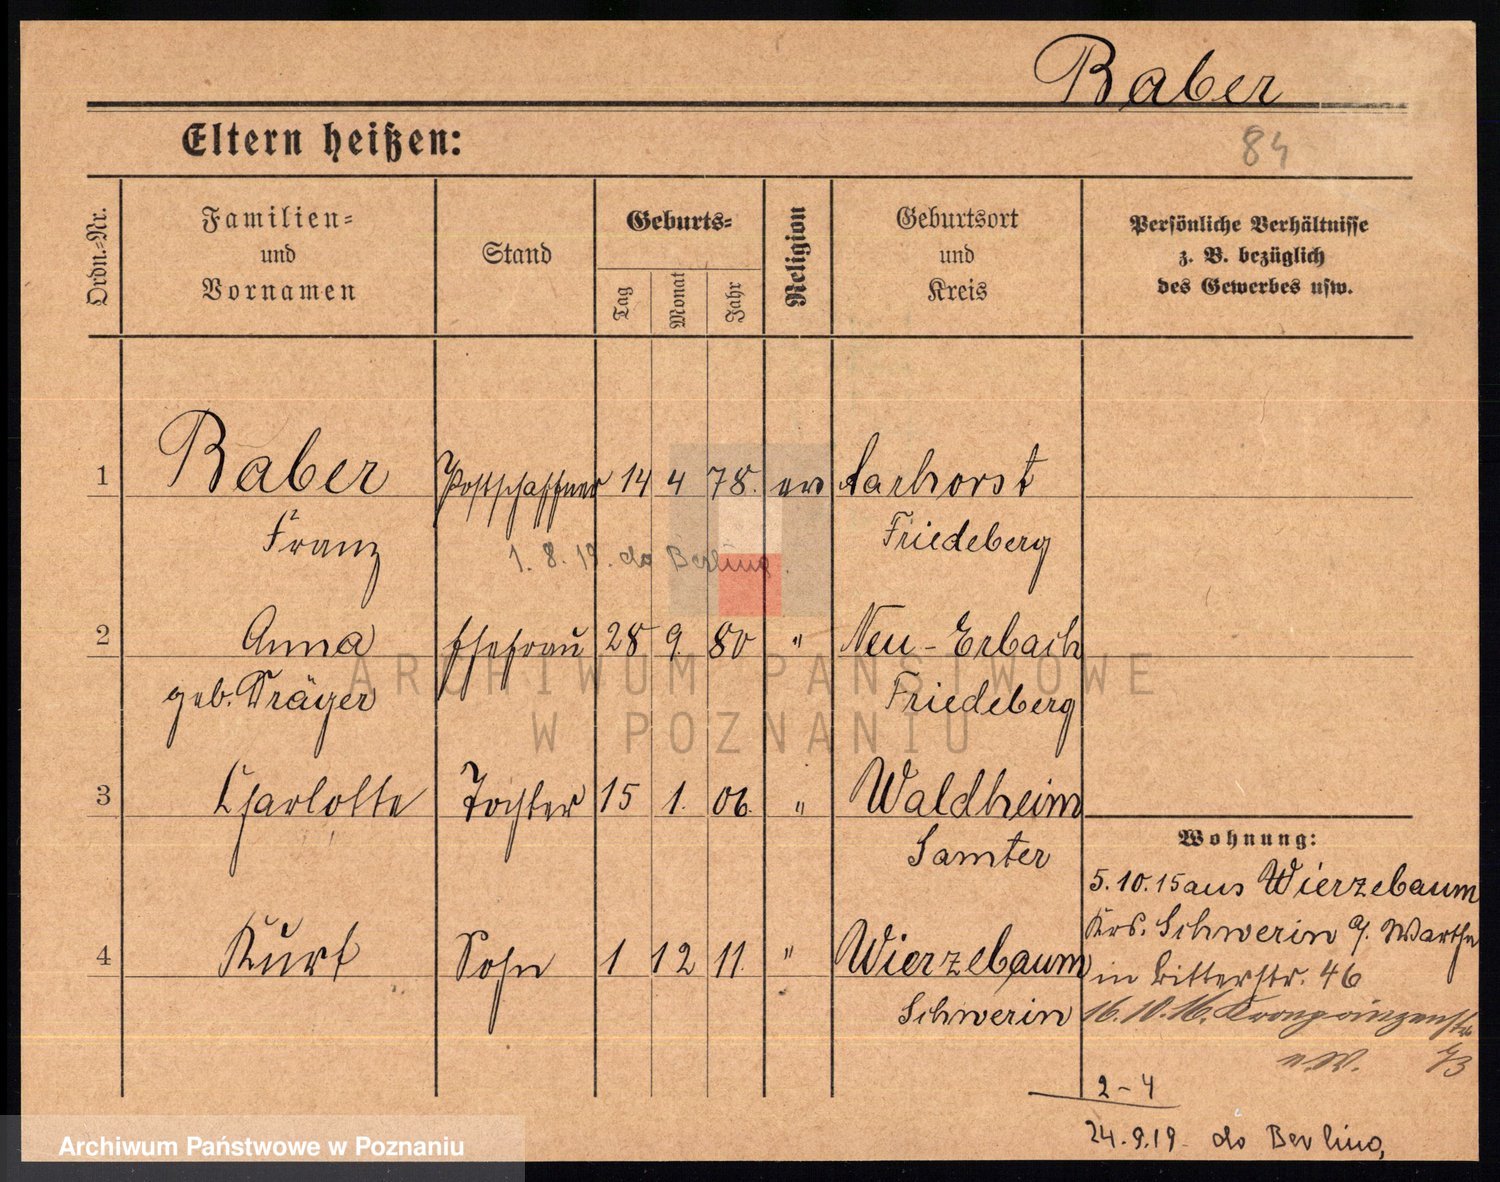 Baber
84
Eltern heißen:
Ordn.=Nr.
Familien=
und
Vornamen
Stand
Geburts=
Tag
Monat
Jahr
Religion
Geburtsort
und
Kreis
Persönliche Verhältnisse
z. B. bezüglich
des Gewerbes usw.
1 Baber Postschaffner 14 4 78. ev Aarhorst
Franz Friedeberg
1. 8. 19. do Berlina.
2 Anna Ehefrau 28 9. 80 " Neu-Erbach
geb. Kräger Friedeberg
3 Charlotte Tochter 15 1. 06. " Waldheim
Samter
4 Kurt Sohn 1 12 11. " Wierzebaum
Schwerin
Wohnung:
5.10.15 aus Wierzebaum
Krs. Schwerin a/. Warthe
in Ritterstr. 46
16.10.16. Kronprinzenstr
n. W. 73
2-4
24.9.19. do Berlina,
ARCHIWUM PAŃSTWOWE
W POZNANIU
Archiwum Państwowe w Poznaniu